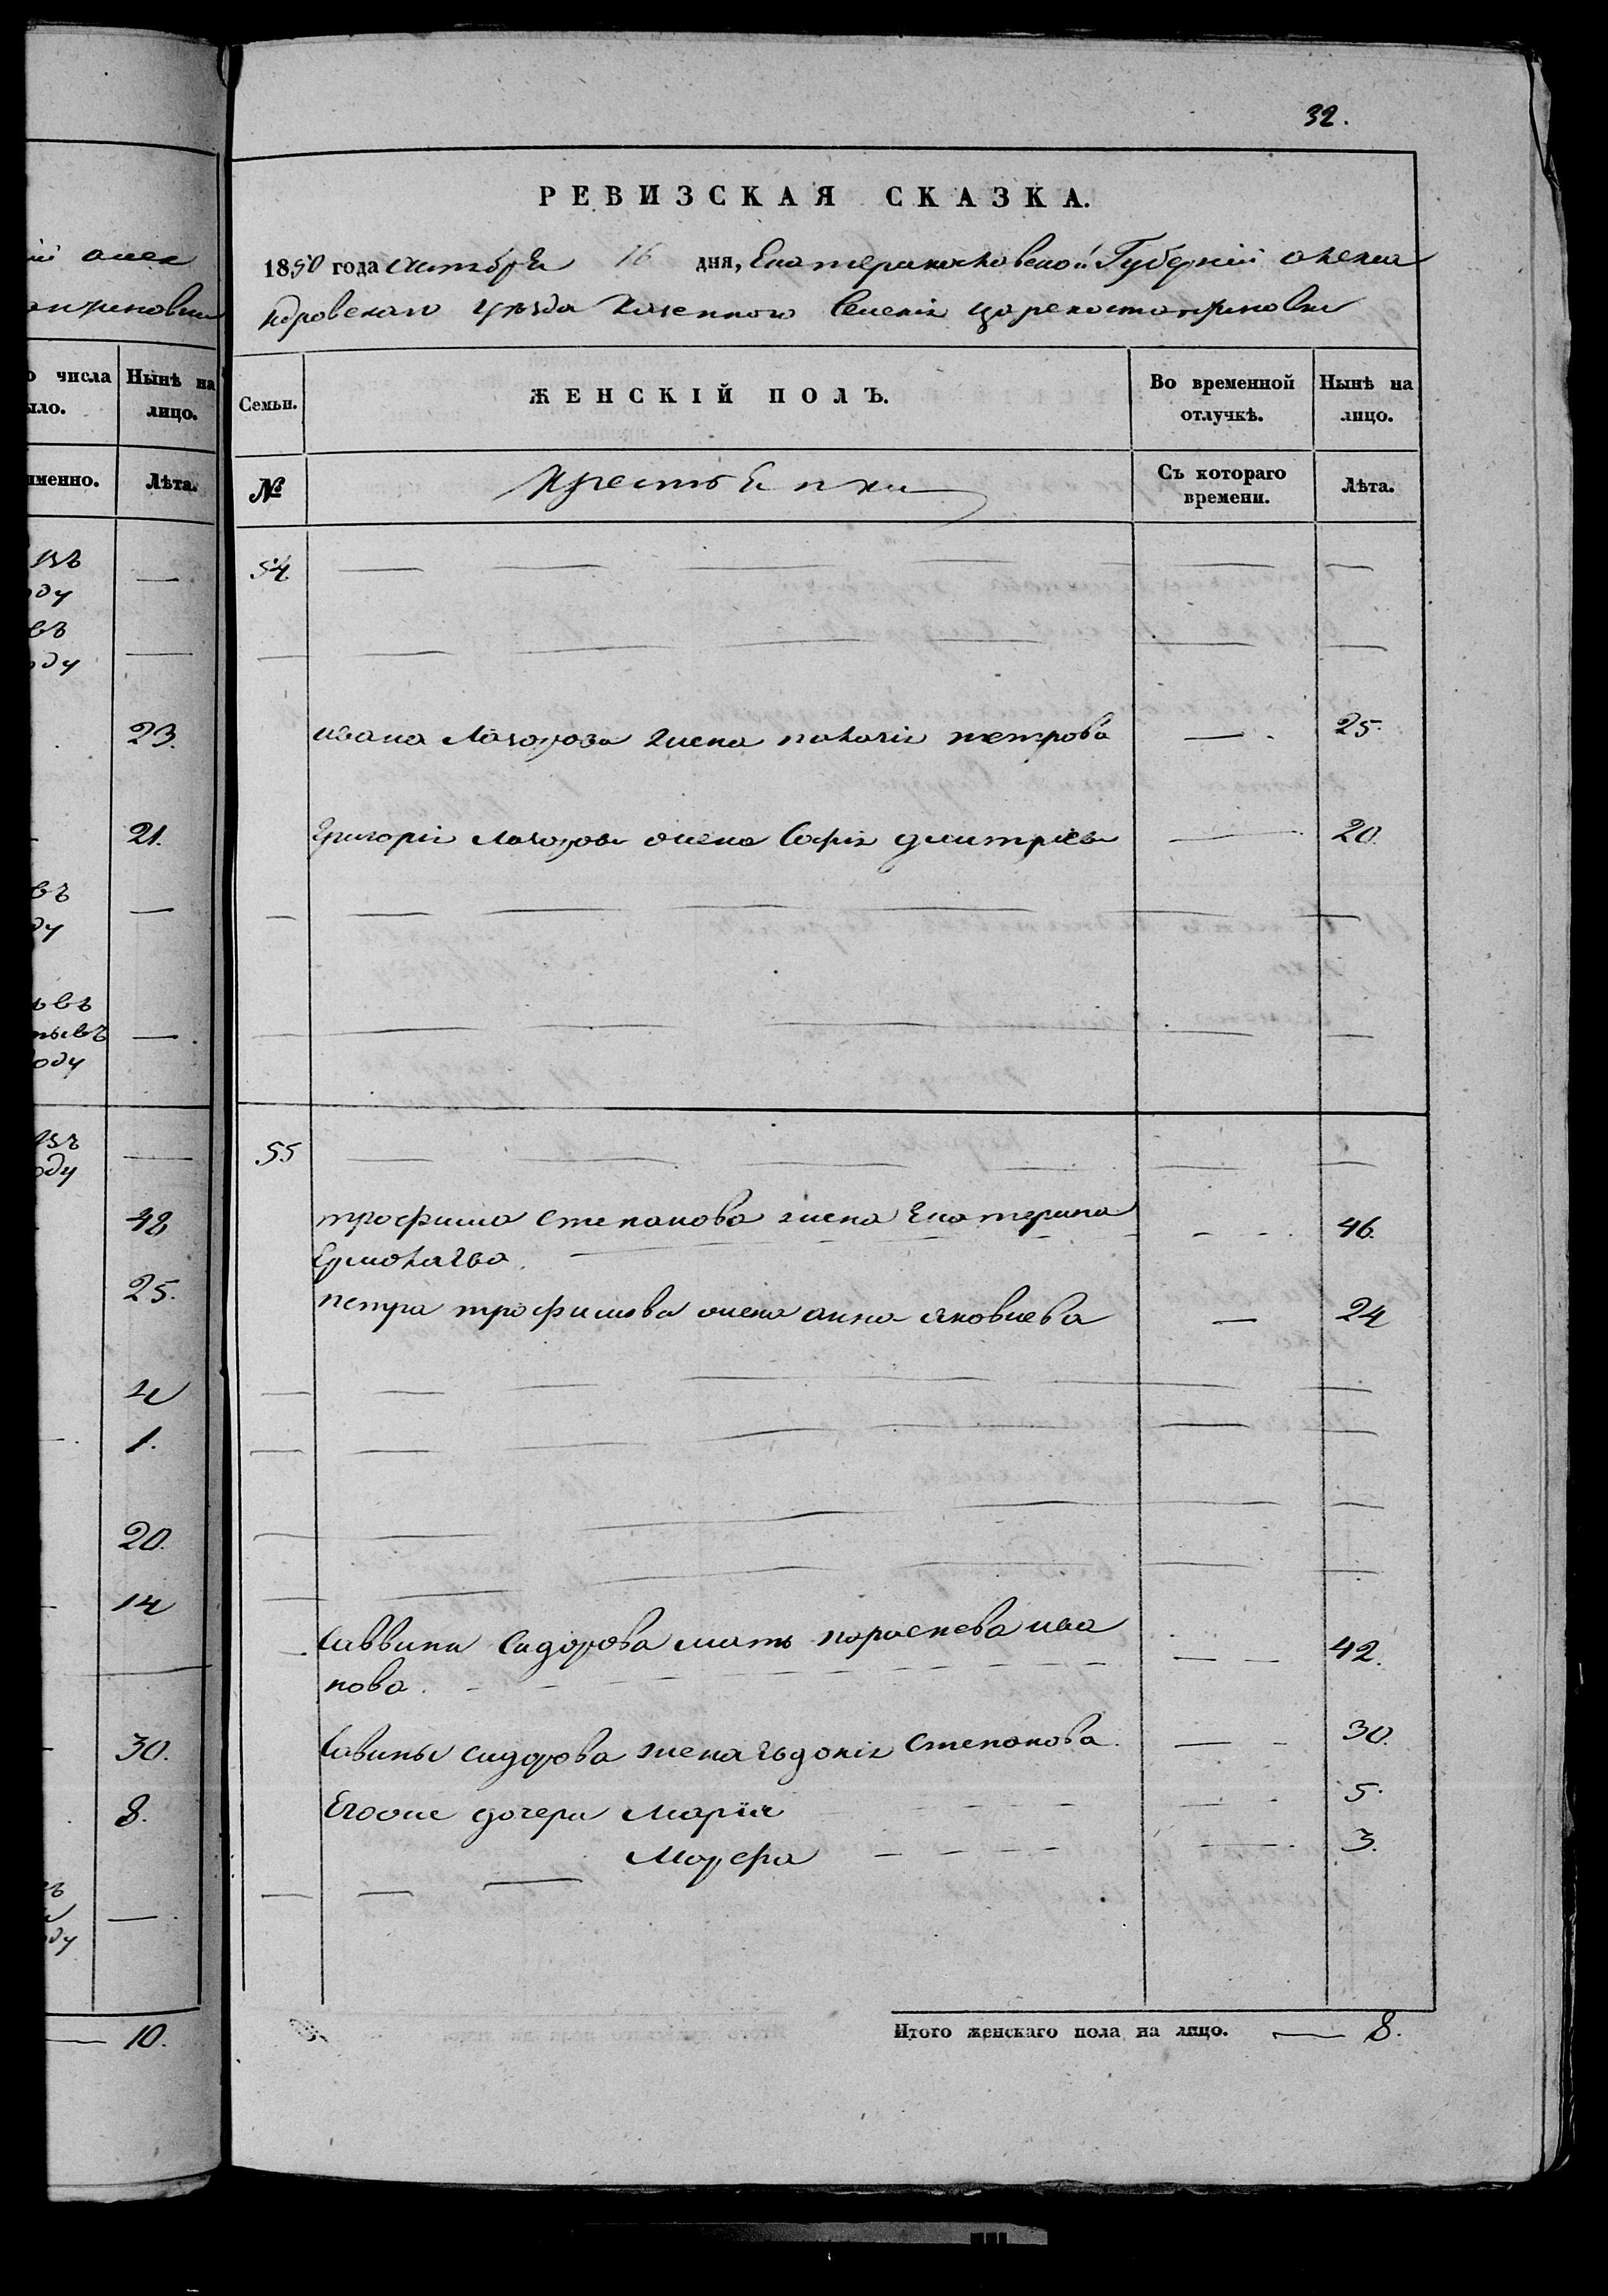 32.
РЕВИЗСКАЯ СКАЗКА.
1850 года октября 16 дня, Екатеринославской Губерніи алекса
ндровскаго уѣзда казенного Селенія цареконстантиновки
Семьи.
ЖЕНСКІЙ ПОЛЪ.
Во временной отлучкѣ.
Нынѣ на лицо.
№
Крестьянки
Съ котораго времени.
Лѣта.
54
ивана жена петрова — 25.
Григорія жена Софія дмитріева — 20.
55
трофима степанова жена Екатерина — 46.
Ермолаева
петра трофимова жена анна яковлева — 24
Саввины Сидорова мать параскева ива — 42.
нова
Савины сидорова жена Степанова — 30.
Егоже дочери Марія — 5.
Марфа — 3.
Итого женскаго пола на лицо. — 8.
алек
о числа
ыло.
Нынѣ на
лицо.
именно.
Лѣта.
оду
23.
21.
оду
48
25.
4
1.
20.
14
30.
8.
— 10.